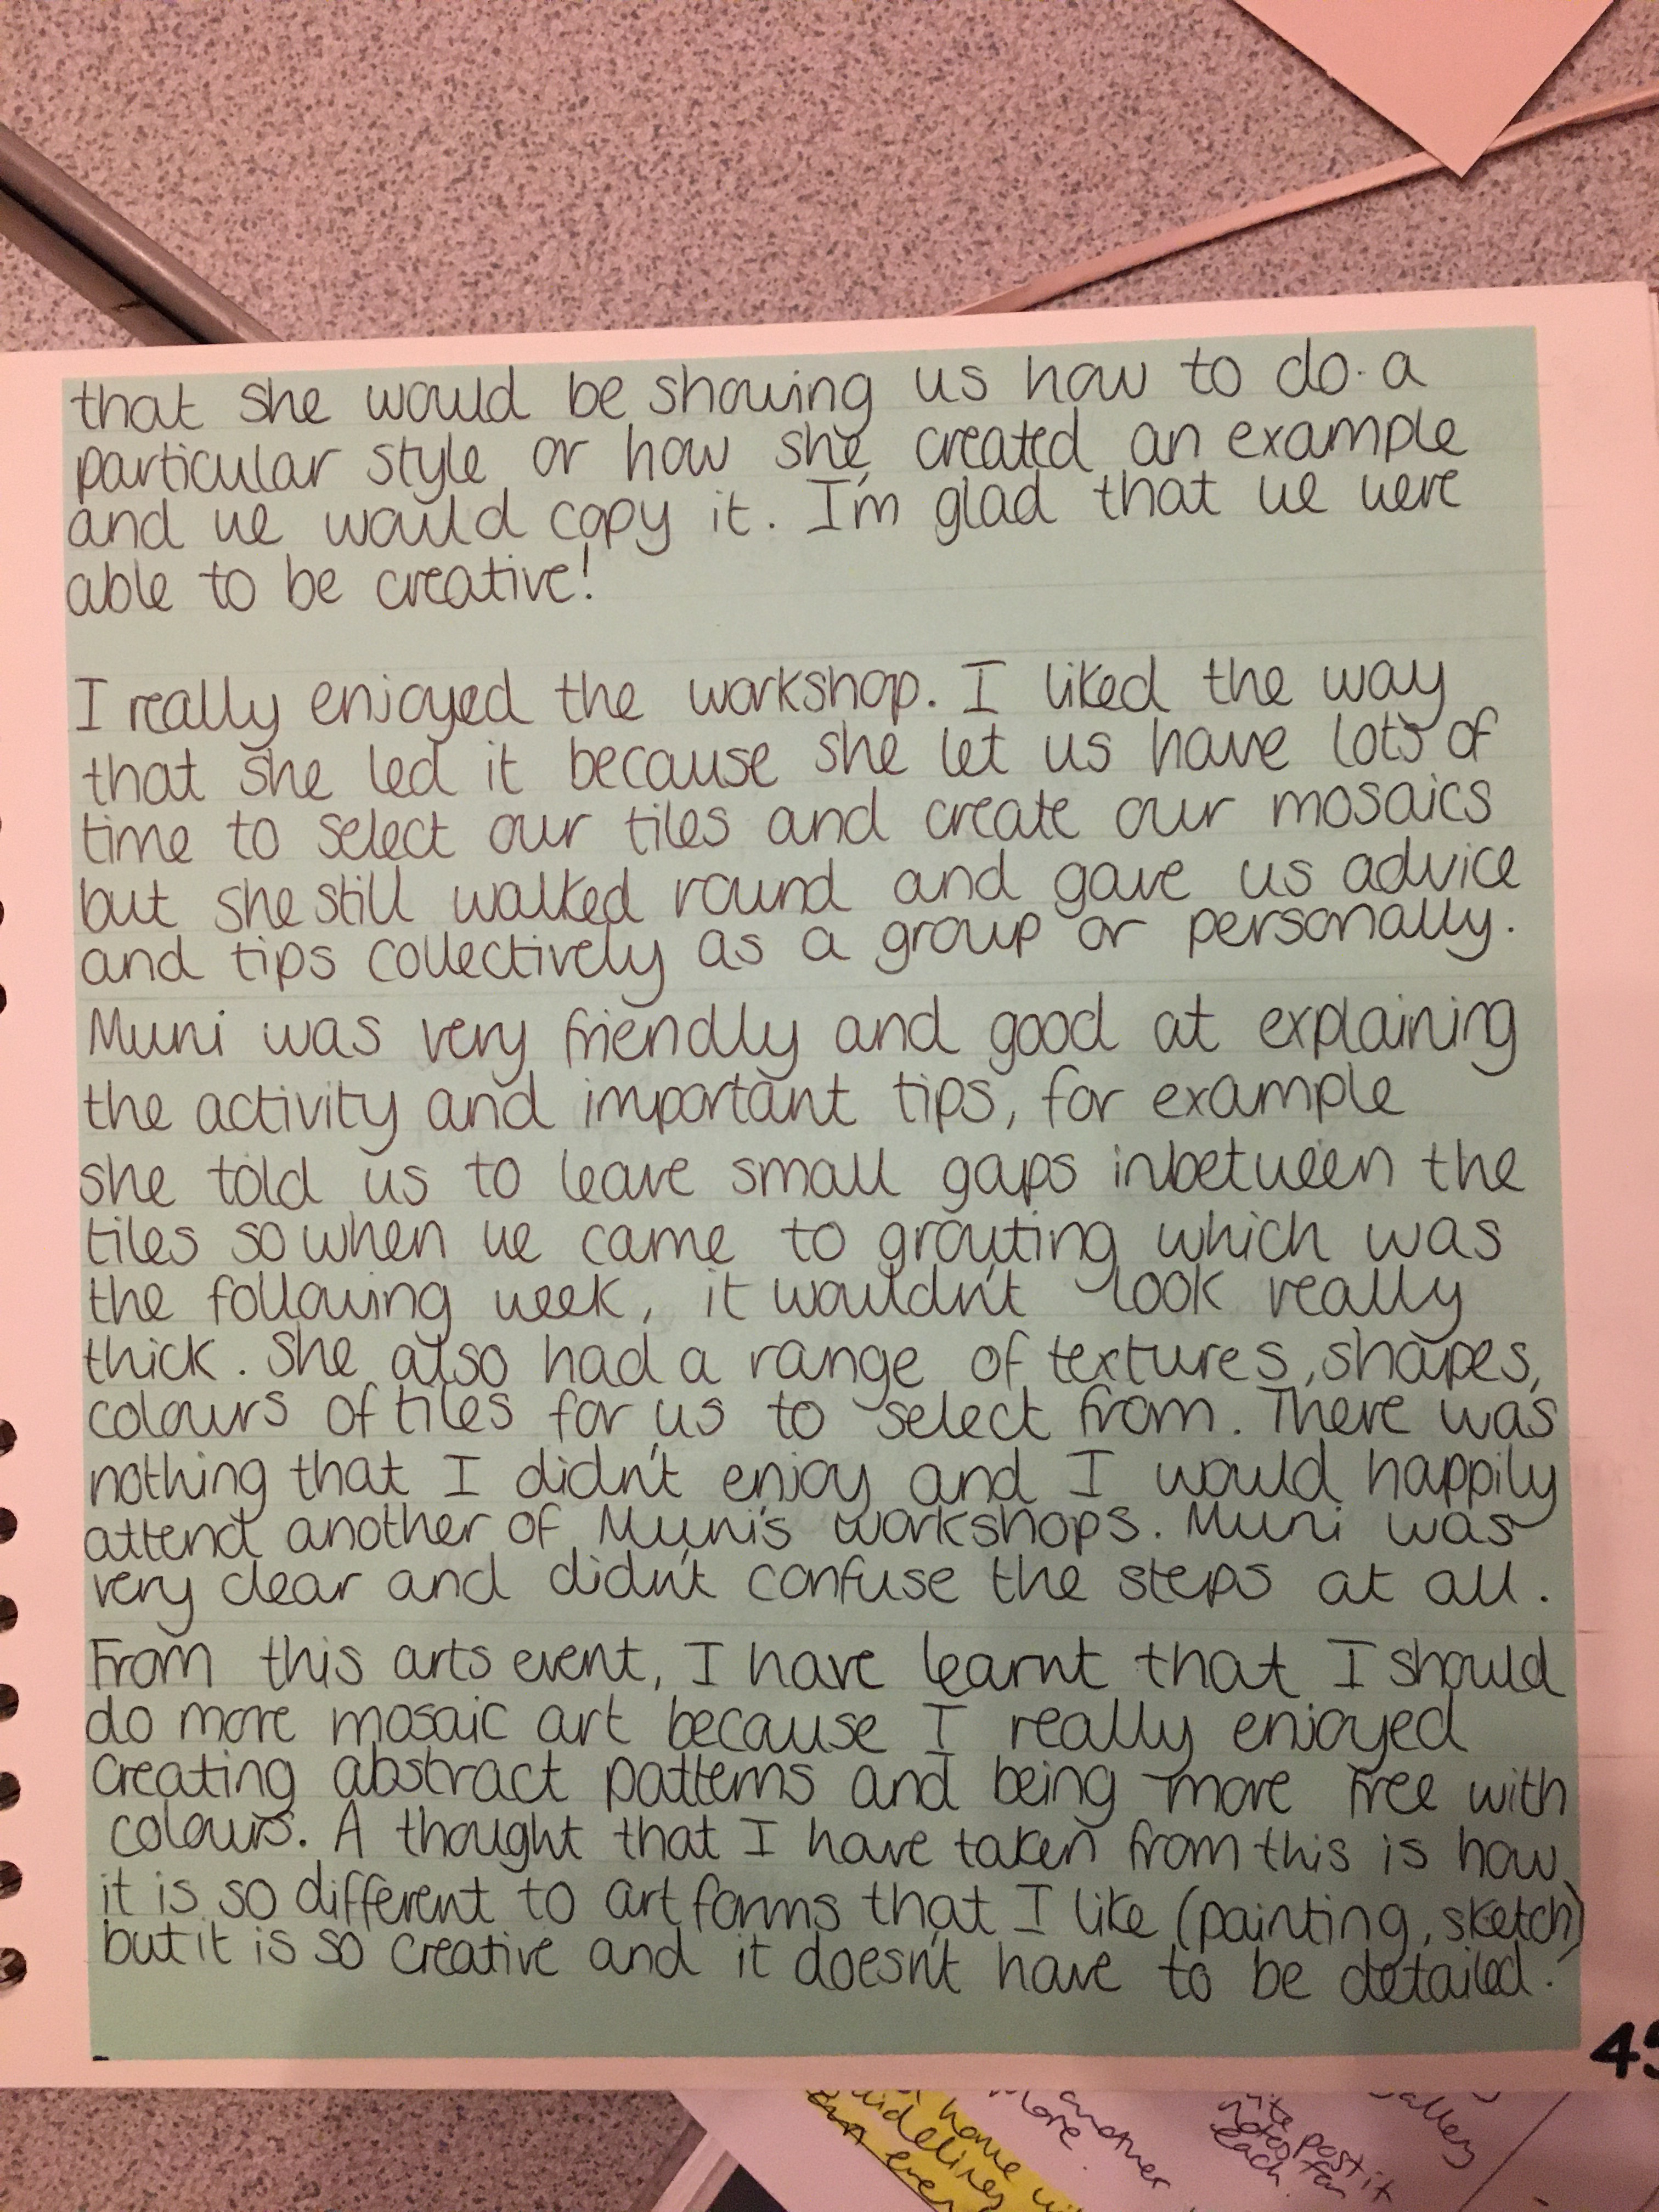 that she would be showing us how to do a
particular style or how she created an example
and we would copy it. I'm glad that we were
able to be creative!
I really enjoyed the workshop. I liked the way
that she led it because she let us have lots of
time to select our tiles and create our mosaics
but she still walked round and gave us advice
and tips collectively as a group or personally.
Muni was very friendly and good at explaining
the activity and important tips, for example
she told us to leave small gaps inbetween the
tiles so when we came to grouting which was
the following week, it wouldn't look really
thick. She also had a range of textures, shapes,
colours of tiles for us to select from. There was
nothing that I didn't enjoy and I would happily
attend another of Muni's workshops. Muni was
very clear and didn't confuse the steps at all.
From this arts event, I have learnt that I should
do more mosaic art because I really enjoyed
creating abstract patterns and being more free with
colours. A thought that I have taken from this is how
it is so different to art forms that I like (painting, sketch)
but it is so creative and it doesn't have to be detailed.
home
guidelines
even
another
more.
post it
notes for
each.